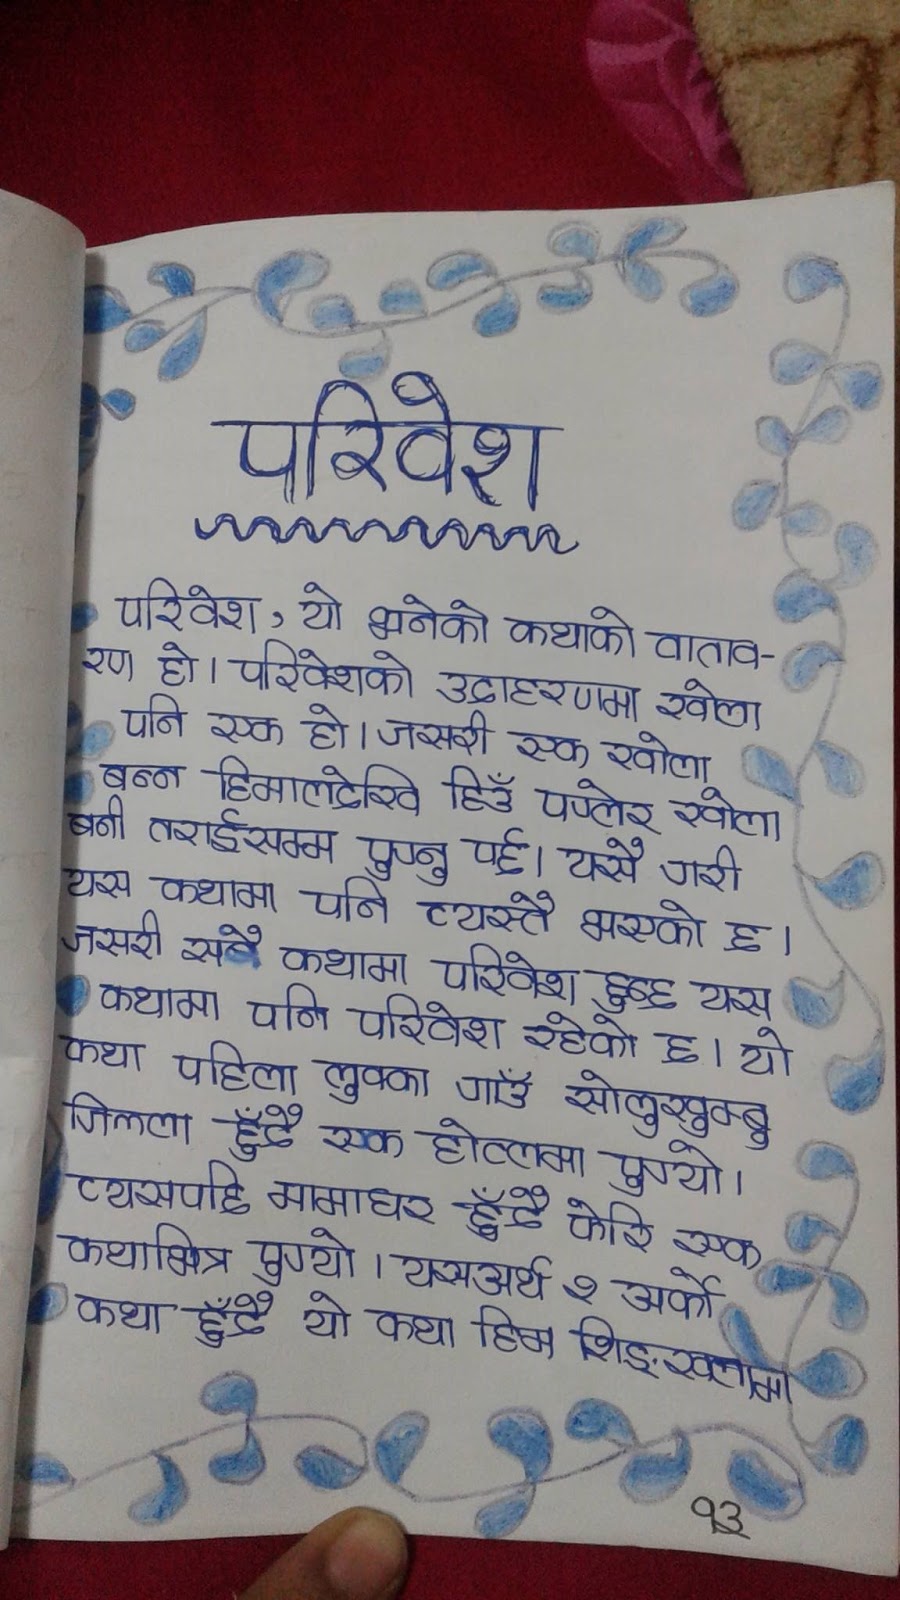 परिवेश
परिवेश, यो भनेको कथाको वाताव-
रण हो। परिवेशको उदाहरणमा खोला
पनि एक हो। जसरी एक खोला
बन्न हिमालदेखि हिउँ पग्लेर खोला
बनी तराईसम्म पुग्नु पर्छ। यसै गरी
यस कथामा पनि त्यस्तै भएको छ।
जसरी सबै कथामा परिवेश हुन्छ यस
कथामा पनि परिवेश रहेको छ। यो
कथा पहिला लुक्का गाउँ सोलुखुम्बु
जिल्ला हुँदै एक होटलमा पुग्यो।
त्यसपछि मामाघर हुँदै फेरि एक
कथाभित्र पुग्यो। यसअर्थ २ अर्को
कथा हुँदै यो कथा हिम शिङ्खलामा
१३